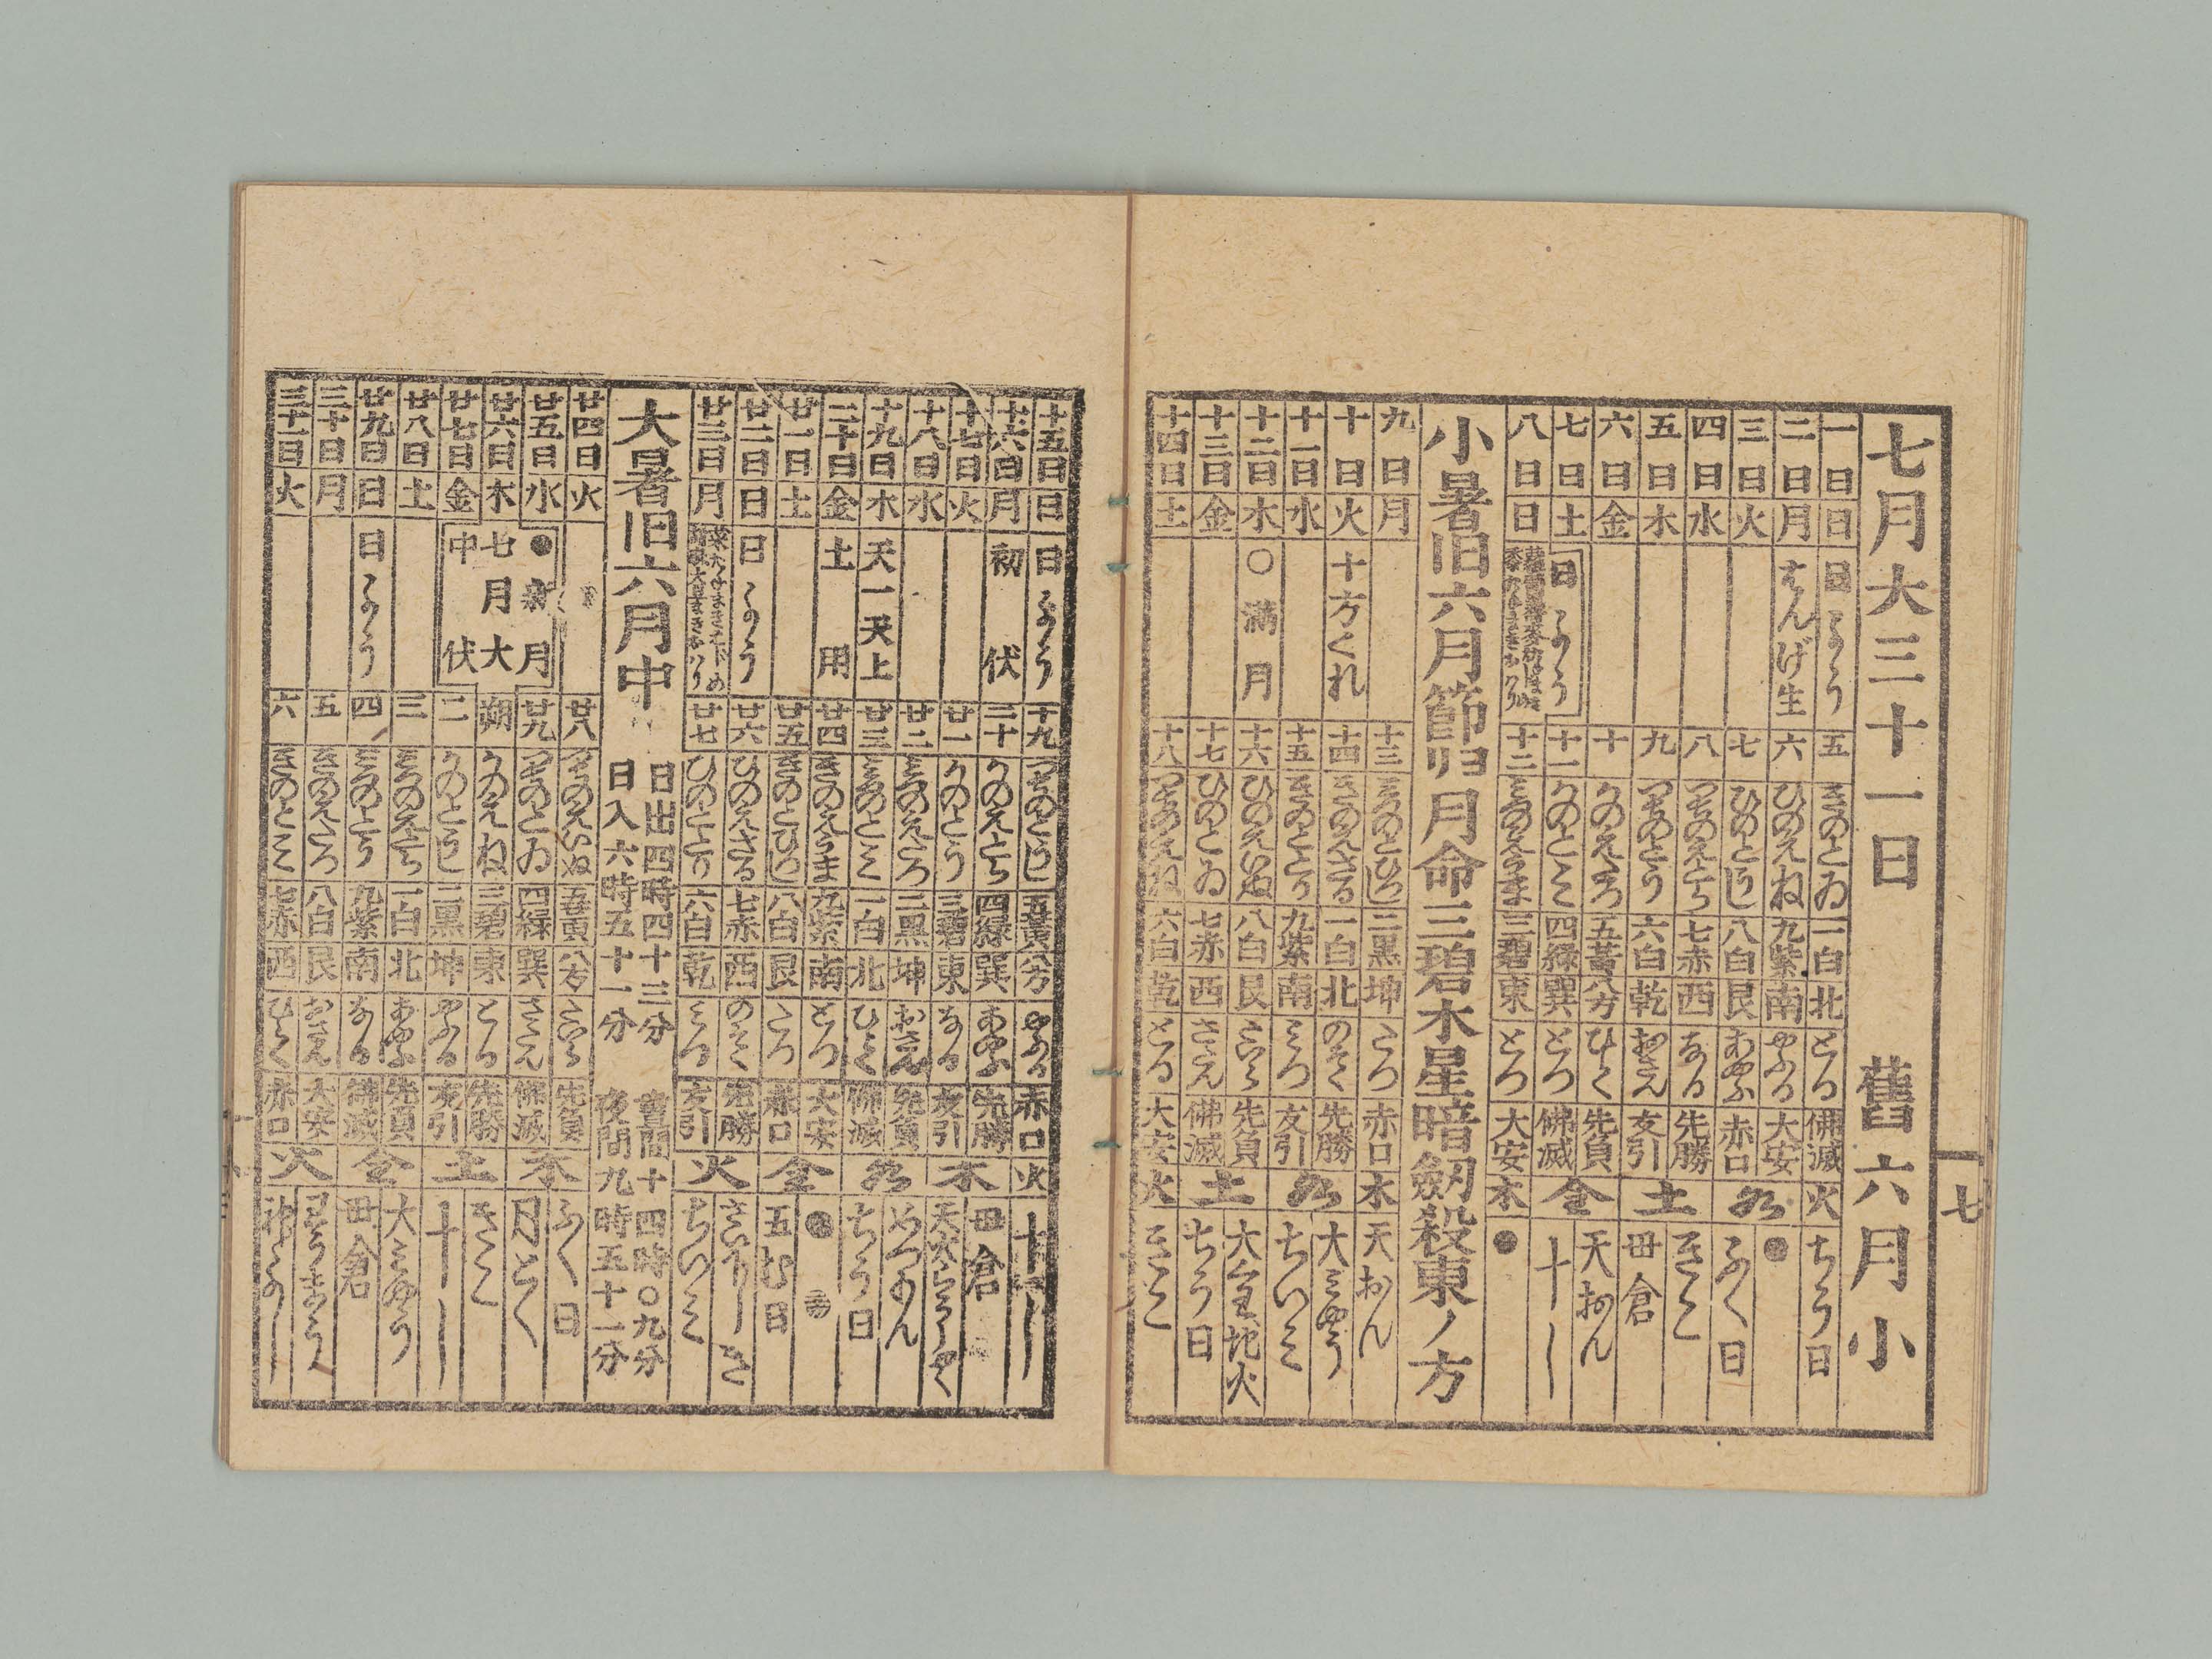 七月大三十一日　舊六月小
七
一日 日 日よう 五 きのとゐ 一白 北 とる 佛滅 火 ちう日
二日 月 はんげ生 六 ひのえね 九紫 南 やぶる 大安
三日 火 七 ひのとうし 八白 艮 あやぶ 赤口 水 ふく日
四日 水 八 つちのえとら 七赤 西 なる 先勝 きこ
五日 木 九 つちのとう 六白 乾 おさん 友引 土 毌倉
六日 金 十 かのえたつ 五黃 八方 ひらく 先負 天おん
七日 土 日よう 十一 かのとみ 四緑 巽 とつ 佛滅 金 十し
八日 日 十二 みづのえうま 三碧 東 とつ 大安 木
小暑旧六月節 月命三碧木星暗劔殺東ノ方
九日 月 十三 みづのとひつじ 二黒 坤 たつ 赤口 木 天おん
十日 火 十方くれ 十四 きのえさる 一白 北 のぞく 先勝 大みやう
十一日 水 十五 きのととり 九紫 南 みつ 友引 水 ちいみ
十二日 木 〇満月 十六 ひのえいぬ 八白 艮 たいら 先負 大室地火
十三日 金 十七 ひのとゐ 七赤 西 さだん 佛滅 土 ちう日
十四日 土 十八 つちのえね 六白 乾 とる 大安 火 きこ
十五日 日 日よう 十九 つちのとうし 五黄 八方 やぶる 赤口 火 十し
十六日 月 初伏 二十 かのえとら 四緑 巽 あやぶ 先勝 毌倉
十七日 火 廿一 かのとう 三碧 東 なる 友引 木
十八日 水 廿二 みづのえたつ 二黒 坤 おさん 先負 めつもん
十九日 木 天一天上 廿三 みづのとみ 一白 北 ひらく 佛滅 水 ちう日
二十日 金 土用 廿四 きのえうま 九紫 南 とつ 大安
廿一日 土 廿五 きのとひつじ 八白 艮 たつ 赤口 金 五む日
廿二日 日 日よう 廿六 ひのえさる 七赤 西 のぞく 先勝
廿三日 月 廿七 ひのととり 六白 乾 みつ 友引 火 ちいみ
大暑旧六月中 日出四時四十三分 日入六時五十一分 晝間十四時〇九分 夜間九時五十一分
廿四日 火 廿八 つちのえいぬ 五黄 八方 たいら 先負 ふく日
廿五日 水 ●新月 廿九 つちのとゐ 四緑 巽 さだん 佛滅 木 月とく
廿六日 木 七月大 朔 かのえね 三碧 東 とる 先勝 きこ
廿七日 金 中伏 二 かのとうし 二黒 坤 やぶる 友引 土 十し
廿八日 土 三 みづのえとら 一白 北 あやぶ 先負 大みやう
廿九日 日 日よう 四 みづのとう 九紫 南 なる 佛滅 金 毌倉
三十日 月 五 きのえたつ 八白 艮 おさん 大安
三十一日 火 六 きのとみ 七赤 西 ひらく 赤口 火 神よし